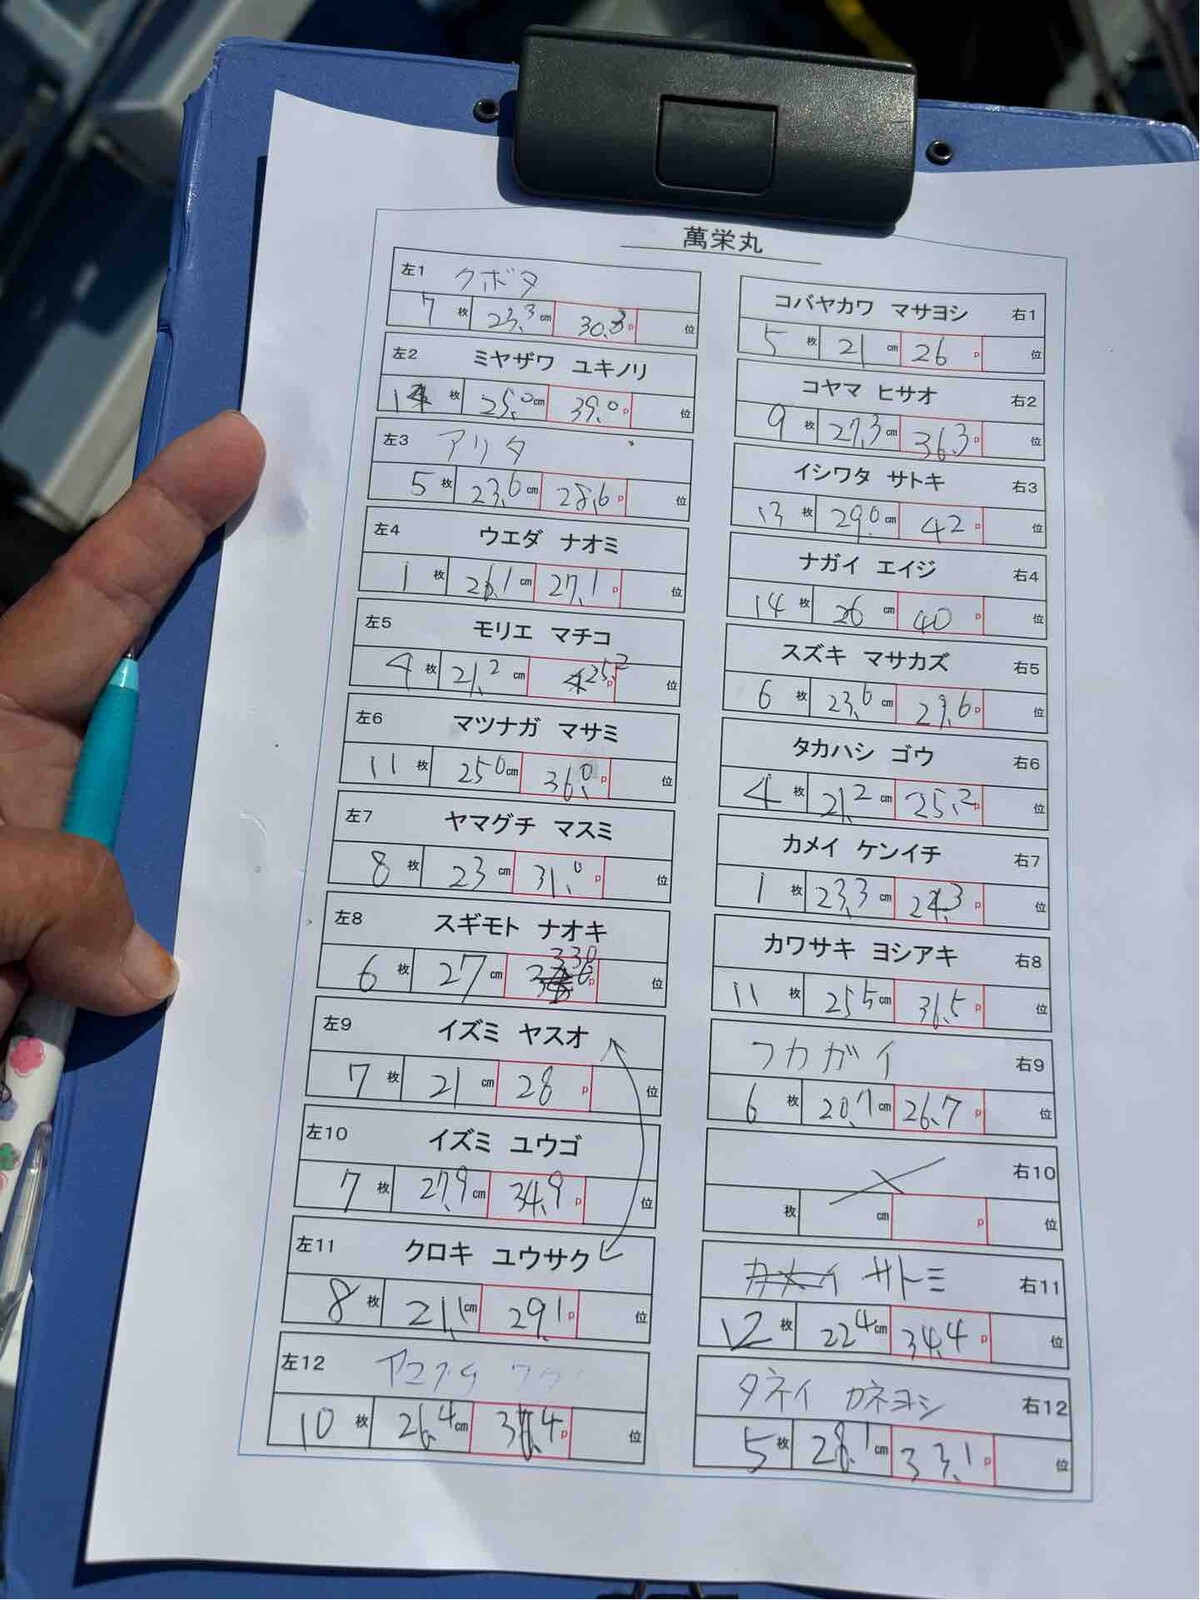 萬栄丸
左1 クボタ
7 枚 23.3 cm 30.3 p 位
左2 ミヤザワ ユキノリ
14 枚 25.0 cm 39.0 p 位
左3 アリタ
5 枚 23.6 cm 28.6 p 位
左4 ウエダ ナオミ
1 枚 26.1 cm 27.1 p 位
左5 モリエ マチコ
4 枚 21.2 cm 25.2 p 位
左6 マツナガ マサミ
11 枚 25.0 cm 36.0 p 位
左7 ヤマグチ マスミ
8 枚 23 cm 31.0 p 位
左8 スギモト ナオキ
6 枚 27 cm 33.0 p 位
左9 イズミ ヤスオ
7 枚 21 cm 28 p 位
左10 イズミ ユウゴ
7 枚 27.9 cm 34.9 p 位
左11 クロキ ユウサク
8 枚 21.1 cm 29.1 p 位
左12
10 枚 26.4 cm 36.4 p 位
コバヤカワ マサヨシ 右1
5 枚 21 cm 26 p 位
コヤマ ヒサオ 右2
9 枚 27.3 cm 36.3 p 位
イシワタ サトキ 右3
13 枚 29.0 cm 42 p 位
ナガイ エイジ 右4
14 枚 26 cm 40 p 位
スズキ マサカズ 右5
6 枚 23.6 cm 29.6 p 位
タカハシ ゴウ 右6
4 枚 21.2 cm 25.2 p 位
カメイ ケンイチ 右7
1 枚 23.3 cm 24.3 p 位
カワサキ ヨシアキ 右8
11 枚 25.5 cm 36.5 p 位
フカガイ 右9
6 枚 20.7 cm 26.7 p 位
右10
枚 cm p 位
カメイ サトミ 右11
12 枚 22.4 cm 34.4 p 位
タネイ カネヨシ 右12
5 枚 28.1 cm 33.1 p 位